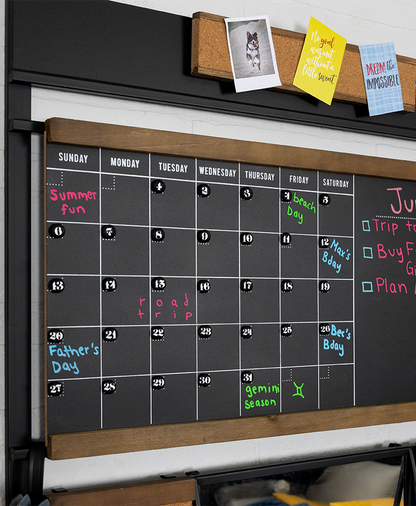 No goal
was met
without a
little sweat
DREAM the
IMPOSSIBLE
SUNDAY MONDAY TUESDAY WEDNESDAY THURSDAY FRIDAY SATURDAY
1 2 3 4 5
Summer
fun
beach
Day
6 7 8 9 10 11 12
Max's
Bday
13 14 15 16 17 18 19
road
trip
20 21 22 23 24 25 26
Father's
Day
Bec's
Bday
27 28 29 30 31
gemini
season
♊
Ju
Trip to
Buy F
Gi
Plan